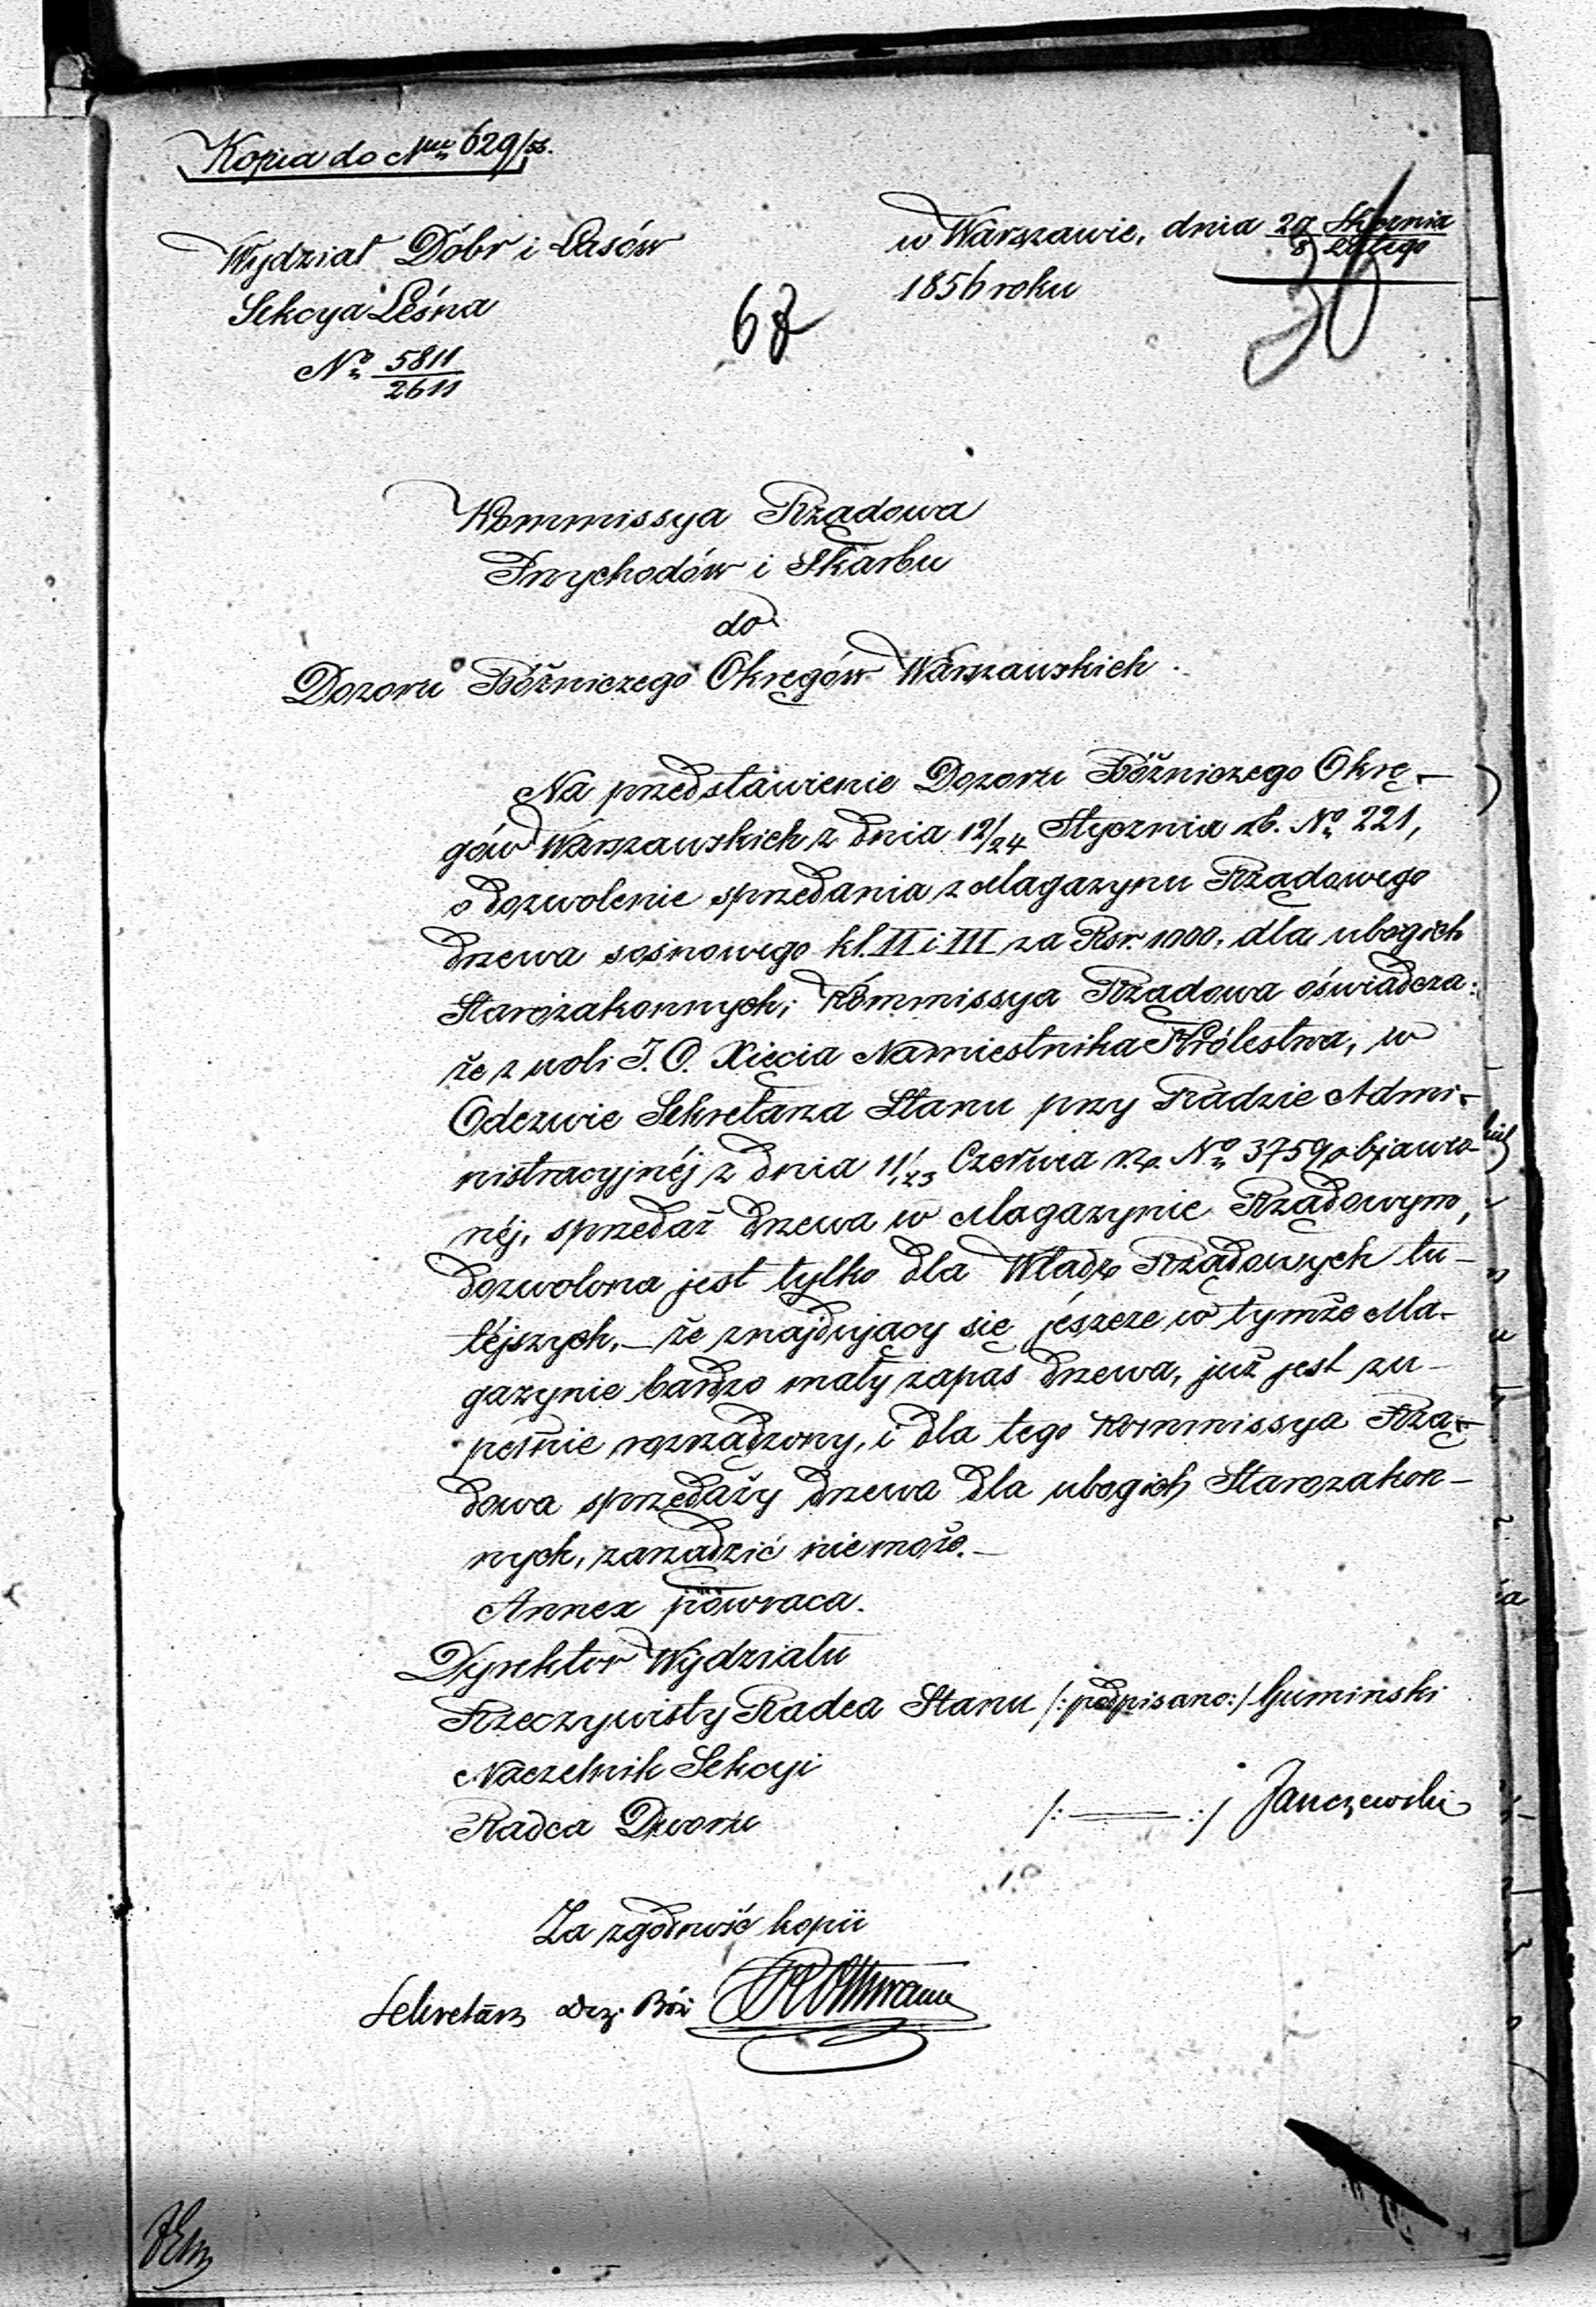 Kopia do Nru 629/56.
Wydział Dóbr i Lasów
w Warszawie, dnia 27 Stycznia / 8 Lutego
Sekcya Leśna
1856 roku
67
36
No 5811/2611
Kommissya Rządowa
Przychodów i Skarbu
do
Dozoru Bóżniczego Okręgów Warszawskich.
Na przedstawienie Dozoru Bóżniczego Okrę-
gów Warszawskich z dnia 12/24 Stycznia rb. No 221,
o dozwolenie sprzedania z Magazynu Rządowego
drzewa sosnowego kl. II i III za Rsr. 1000, dla ubogich
Starozakonnych; Kommissya Rządowa oświadcza:
że z woli J. O. Xięcia Namiestnika Królestwa, w
Odezwie Sekretarza Stanu przy Radzie Admi-
nistracyjnéj z dnia 11/23 Czerwca r.z. No 3759 objawio-
néj, sprzedaż drzewa w Magazynie Rządowym,
dozwolona jest tylko dla Władz Rządowych tu-
téjszych, — że znajdujący się jészcze w tymże Ma-
gazynie bardzo mały zapas drzewa, już jest zu-
pełnie rozrządzony, i dla tego Kommissya Rzą-
dowa sprzedaży drzewa dla ubogich Starozakon-
nych, zarządzić niemoże. —
Annex powraca.
Dyrektor Wydziału
Rzeczywisty Radca Stanu /:podpisano:/ Guminski
Naczelnik Sekcyi
Radca Dworu /: — :/ Janczewski
Za zgodność kopii
Sekretarz Doz. Bóż.